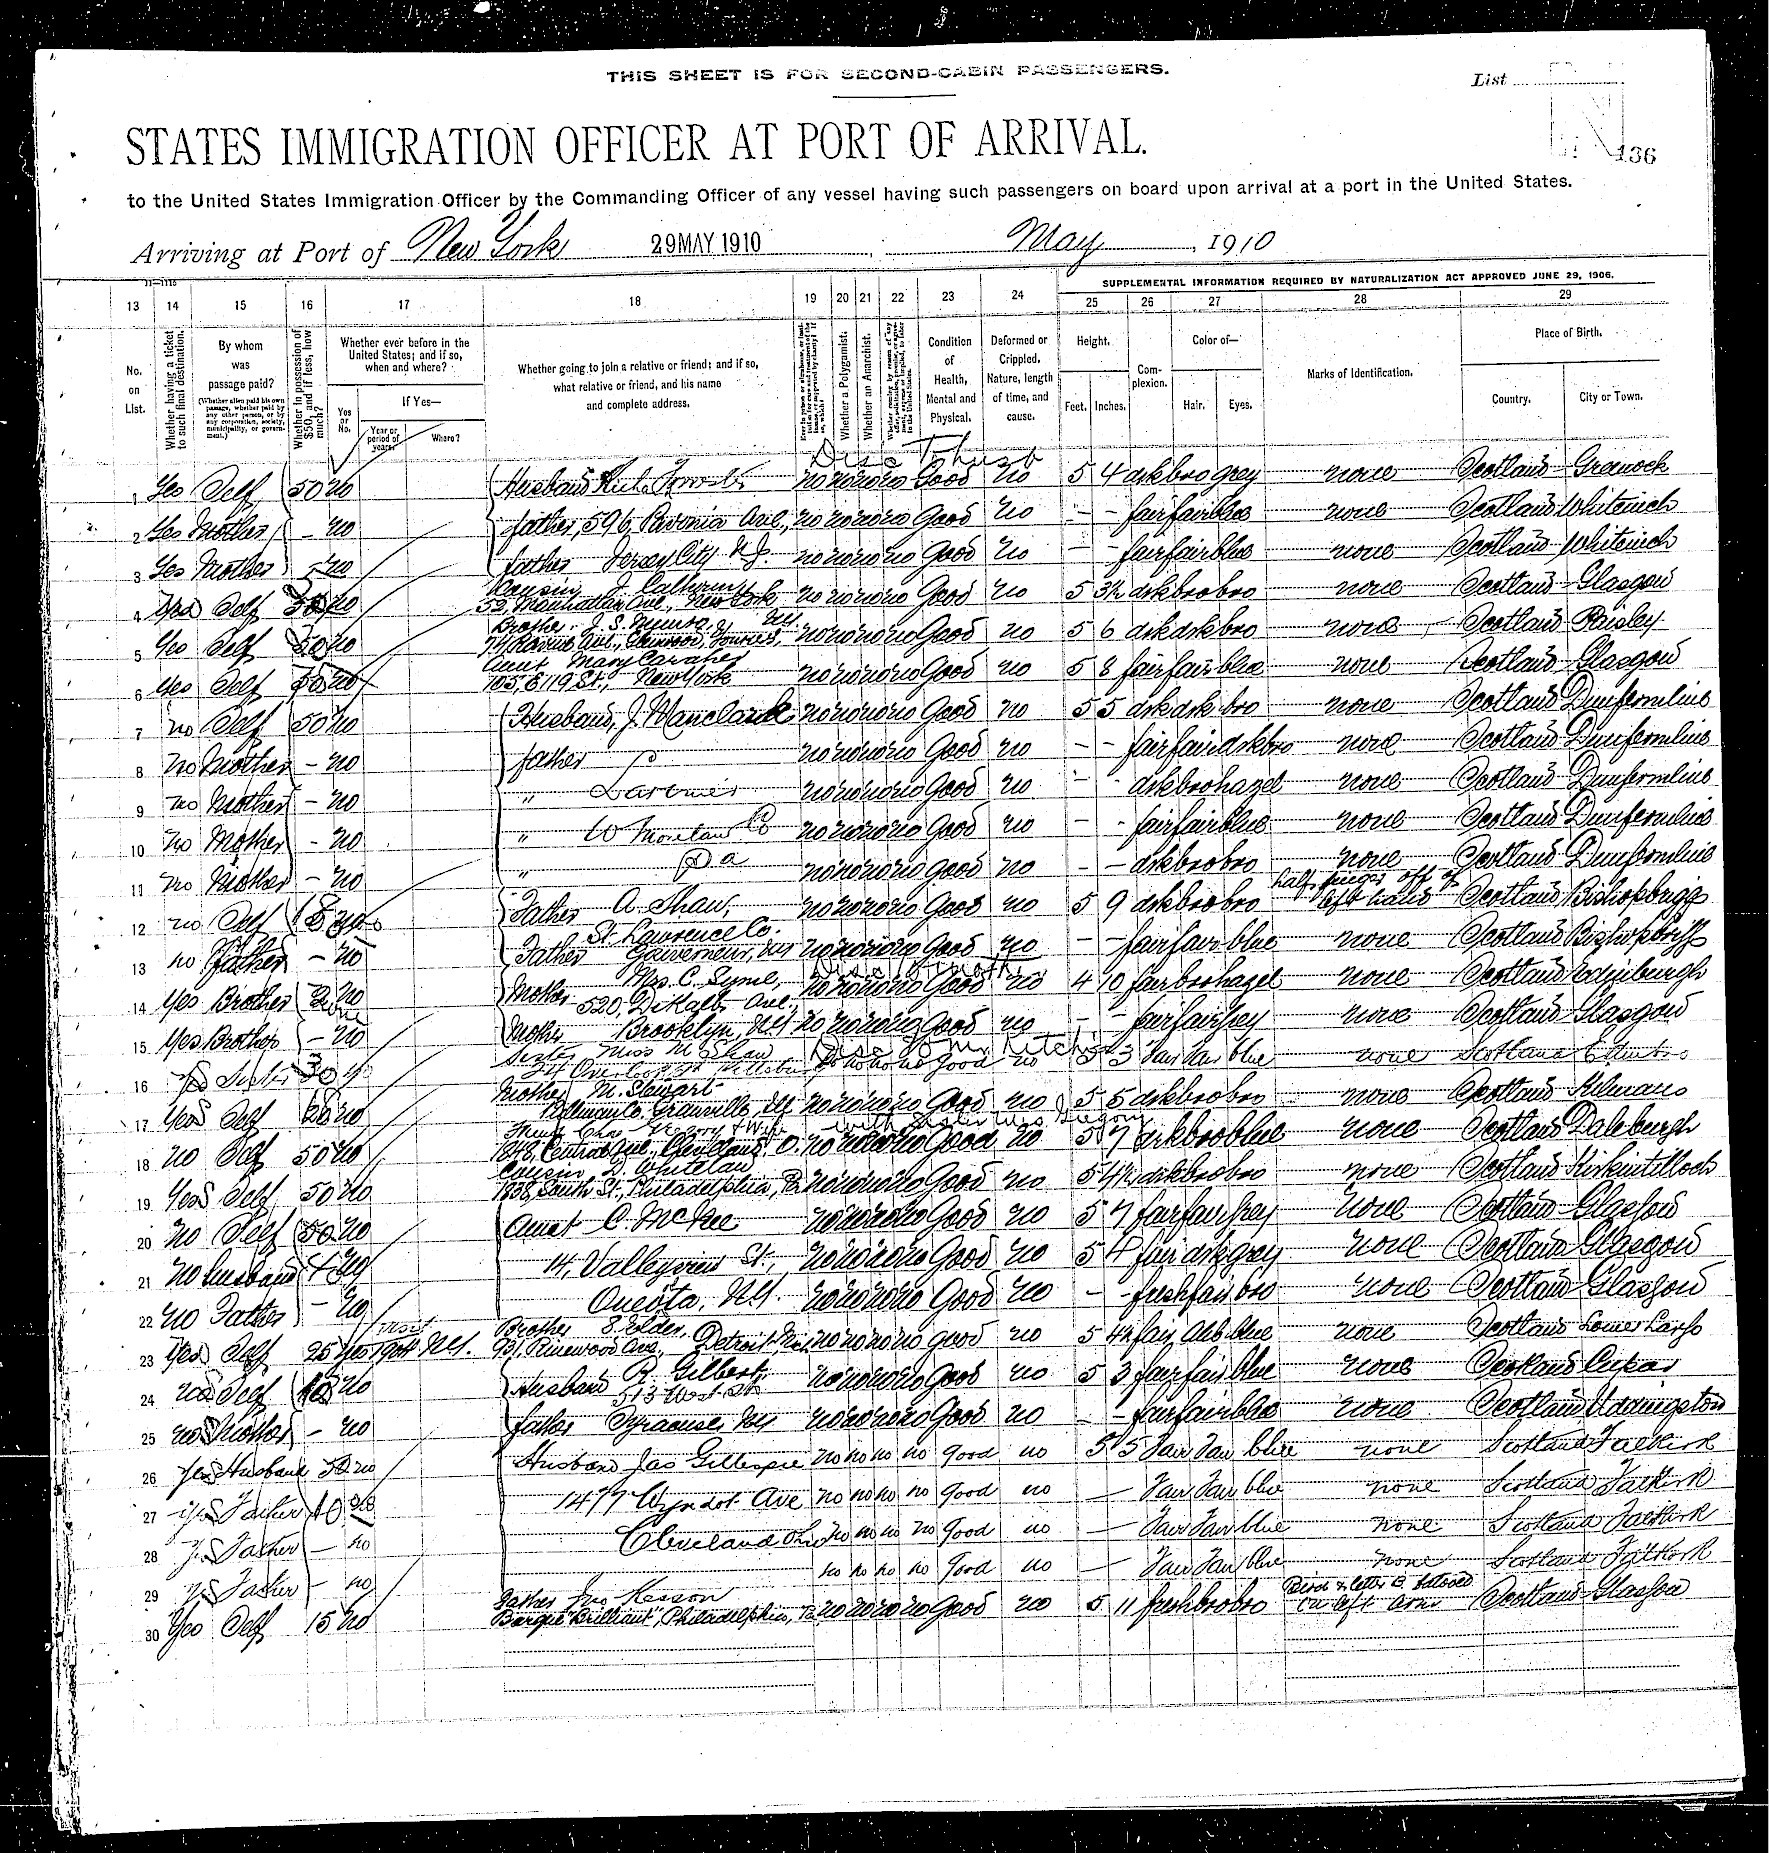 THIS SHEET IS FOR SECOND-CABIN PASSENGERS.
List
STATES IMMIGRATION OFFICER AT PORT OF ARRIVAL.
136
to the United States Immigration Officer by the Commanding Officer of any vessel having such passengers on board upon arrival at a port in the United States.
Arriving at Port of New York 29 MAY 1910, May, 1910
SUPPLEMENTAL INFORMATION REQUIRED BY NATURALIZATION ACT APPROVED JUNE 29, 1906.
13 14 15 16 17 18 19 20 21 22 23 24 25 26 27 28 29
No. on List.
Whether having a ticket to such final destination.
By whom was passage paid?
(Whether alien paid his own passage, whether paid by any other person, or by any corporation, society, municipality, or government.)
Whether in possession of $50, and if less, how much?
Whether ever before in the United States; and if so, when and where?
Yes or No.
If Yes—
Year or period of years.
Where?
Whether going to join a relative or friend; and if so, what relative or friend, and his name and complete address.
Whether a Polygamist.
Whether an Anarchist.
Condition of Health, Mental and Physical.
Deformed or Crippled. Nature, length of time, and cause.
Height.
Feet. Inches.
Complexion.
Color of—
Hair. Eyes.
Marks of Identification.
Place of Birth.
Country. City or Town.
1 Yes Self 50 no Husband no no no no Good no 5 4 dsk bro grey none Scotland Greenock
2 Yes Mother - no father, 596 Pavonia Ave., no no no no Good no - - fair fair blue none Scotland Whiteinch
3 Yes Mother - no father Jersey City N.J. no no no no Good no - - fair fair blue none Scotland Whiteinch
4 Yes Self no Cousin J. Calhoun
52, Manhattan Ave., New York no no no no Good no 5 3½ dsk bro bro none Scotland Glasgow
5 Yes Self 50 no Brother J. S. Munro, NY
Ravine Ave., Glenwood, Yonkers, no no no no Good no 5 6 dsk dsk bro none Scotland Paisley
6 Yes Self 50 no Aunt Mary Caraher
105, E 119 St., New York no no no no Good no 5 8 fair fair blue none Scotland Glasgow
7 no Self 50 no Husband, J. no no no no Good no 5 5 dsk dsk bro none Scotland Dunfermline
8 no Mother - no father no no no no Good no - - fair fair dsk bro none Scotland Dunfermline
9 no Mother - no " no no no no Good no - - dsk bro hazel none Scotland Dunfermline
10 no Mother - no " no no no no Good no - - fair fair blue none Scotland Dunfermline
11 no Mother - no " Pa no no no no Good no - - dsk bro bro none Scotland Dunfermline
12 no Self Father A. Shaw, no no no no Good no 5 9 dsk bro bro left hand Scotland Bishopbriggs
St. Lawrence Co.
13 no Father - no Father Gouverneur, NY no no no no Good no - - fair fair blue none Scotland Bishopbriggs
14 Yes Brother no Mother Mrs. C. Syme, no no no no Good no 4 10 fair bro hazel none Scotland Edinburgh
520, DeKalb Ave.
15 Yes Brother - no Mother Brooklyn, NY no no no no Good no - - fair fair grey none Scotland Glasgow
16 Yes Sister 30 no Sister Miss M. Shaw
no no no no good no 5 3 Fair Fair blue none Scotland
17 Yes Self no Mother M. Stewart
Granville, NY no no no no Good no 5 5 dsk bro bro none Scotland
18 no Self 50 no
1848, Central Ave., Cleveland, O. no no no no Good no 5 7 dsk bro blue none Scotland
19 Yes Self 50 no Cousin D. Whitelaw
1838, South St., Philadelphia, Pa no no no no Good no 5 4½ dsk bro bro none Scotland Kirkintilloch
20 no Self 50 no Aunt C. McKee no no no no Good no 5 7 fair fair grey none Scotland Glasgow
21 no Husband no 14, Valleyview St., no no no no Good no 5 4 fair dsk grey none Scotland Glasgow
22 no Father - no Oneonta, NY. no no no no Good no - - fresh fair bro none Scotland Glasgow
23 Yes Self 25 yes NY. Brother S. Elder,
931, Pinewood Ave., Detroit no no no no good no 5 4½ fair blue none Scotland
24 no Self no Husband R. Gilbert, no no no no Good no 5 3 fair fair blue none Scotland Cupar
513 West St.
25 no Mother - no father Syracuse, NY no no no no Good no - - fair fair blue none Scotland Uddingston
26 Yes Husband 50 no Husband Jas Gillespie no no no no good no 5 5 Fair Fair blue none Scotland Falkirk
27 Yes Father 1477 Wyndot Ave no no no no Good no — Fair Fair blue none Scotland Falkirk
28 Yes Father — no Cleveland Ohio no no no no good no — Fair Fair blue none Scotland Falkirk
29 Yes Father - no no no no no good no — Fair Fair blue none Scotland Falkirk
30 Yes Self 15 no Father Jno Kesson
Barque "Brilliant", Philadelphia, Pa no no no no Good no 5 11 fresh bro bro Bird & letter B. tatooed on left arm Scotland Glasgow